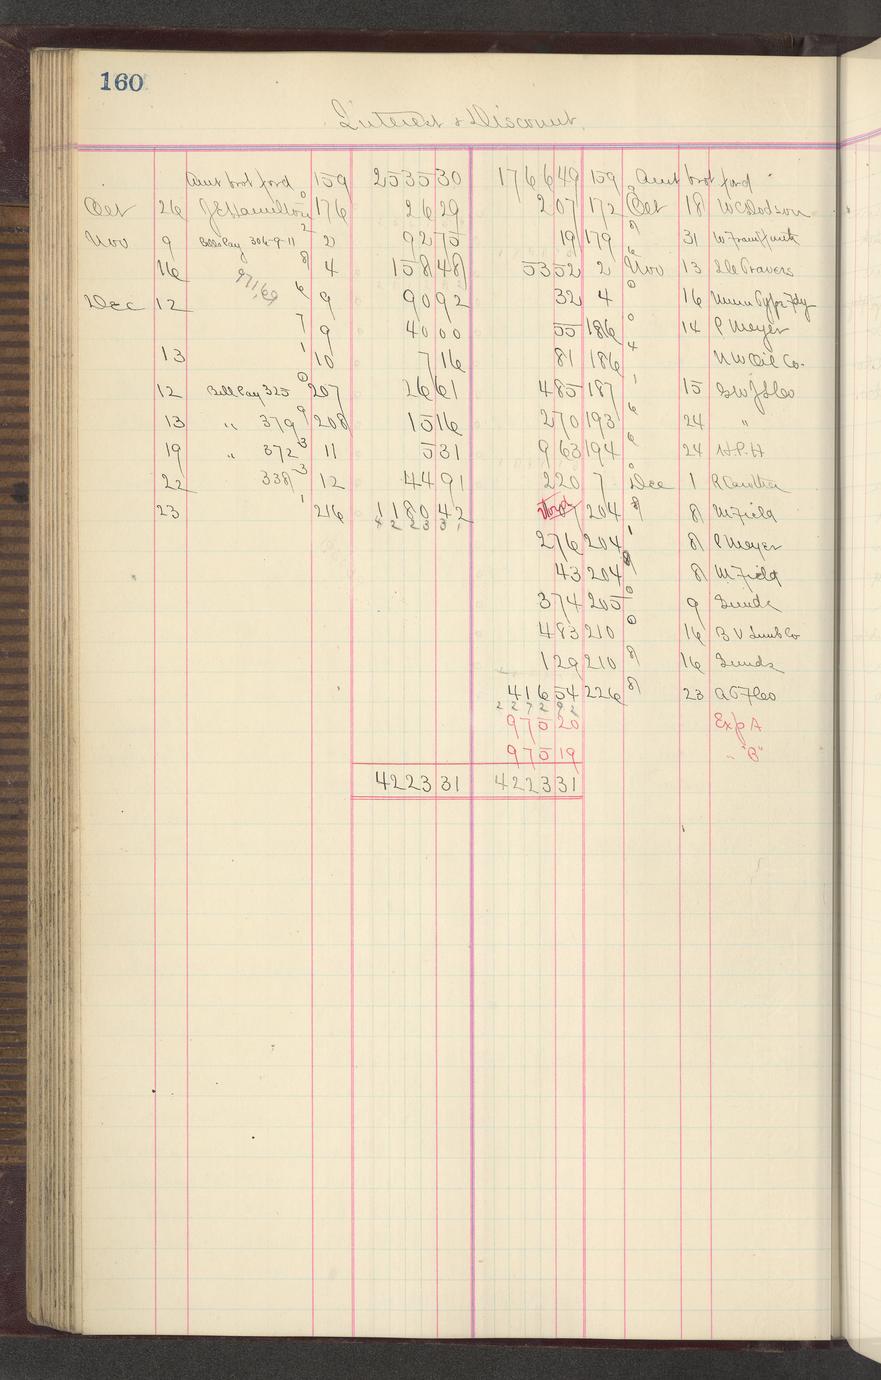 160
Interest & Discount.
Amt brot ford 159 2535 30 1766 49 159 Amt brot ford
Oct 26 J E Hamilton 176 26 29 2 07 172 Oct 18 W C Dodson
Nov 9 Bills Pay 304-9-11 2 92 75 19 179 31
16 4 158 48 53 52 2 Nov 13
Dec 12 9 90 92 32 4 16
9 40 00 55 186 14 P Meyer
13 10 7 16 81 186 N W Oil Co.
12 Bill Pay 325 207 26 61 4 85 187 15
13 " 379 208 15 16 2 70 193 24 "
19 " 372 11 5 31 9 63 194 24 H. P. H
22 338 12 44 91 2 20 7 Dec 1 R
23 216 1180 42 204 8 M Field
4 2 2 3 3 1
2 76 204 8 P Meyer
43 204 8 M Field
3 74 205 9
4 93 210 16 B V Lumb Co
1 29 210 16
416 54 226 23
2 2 7 2 9 2
975 20 Exp A
975 19 " "B"
4223 31 4223 31